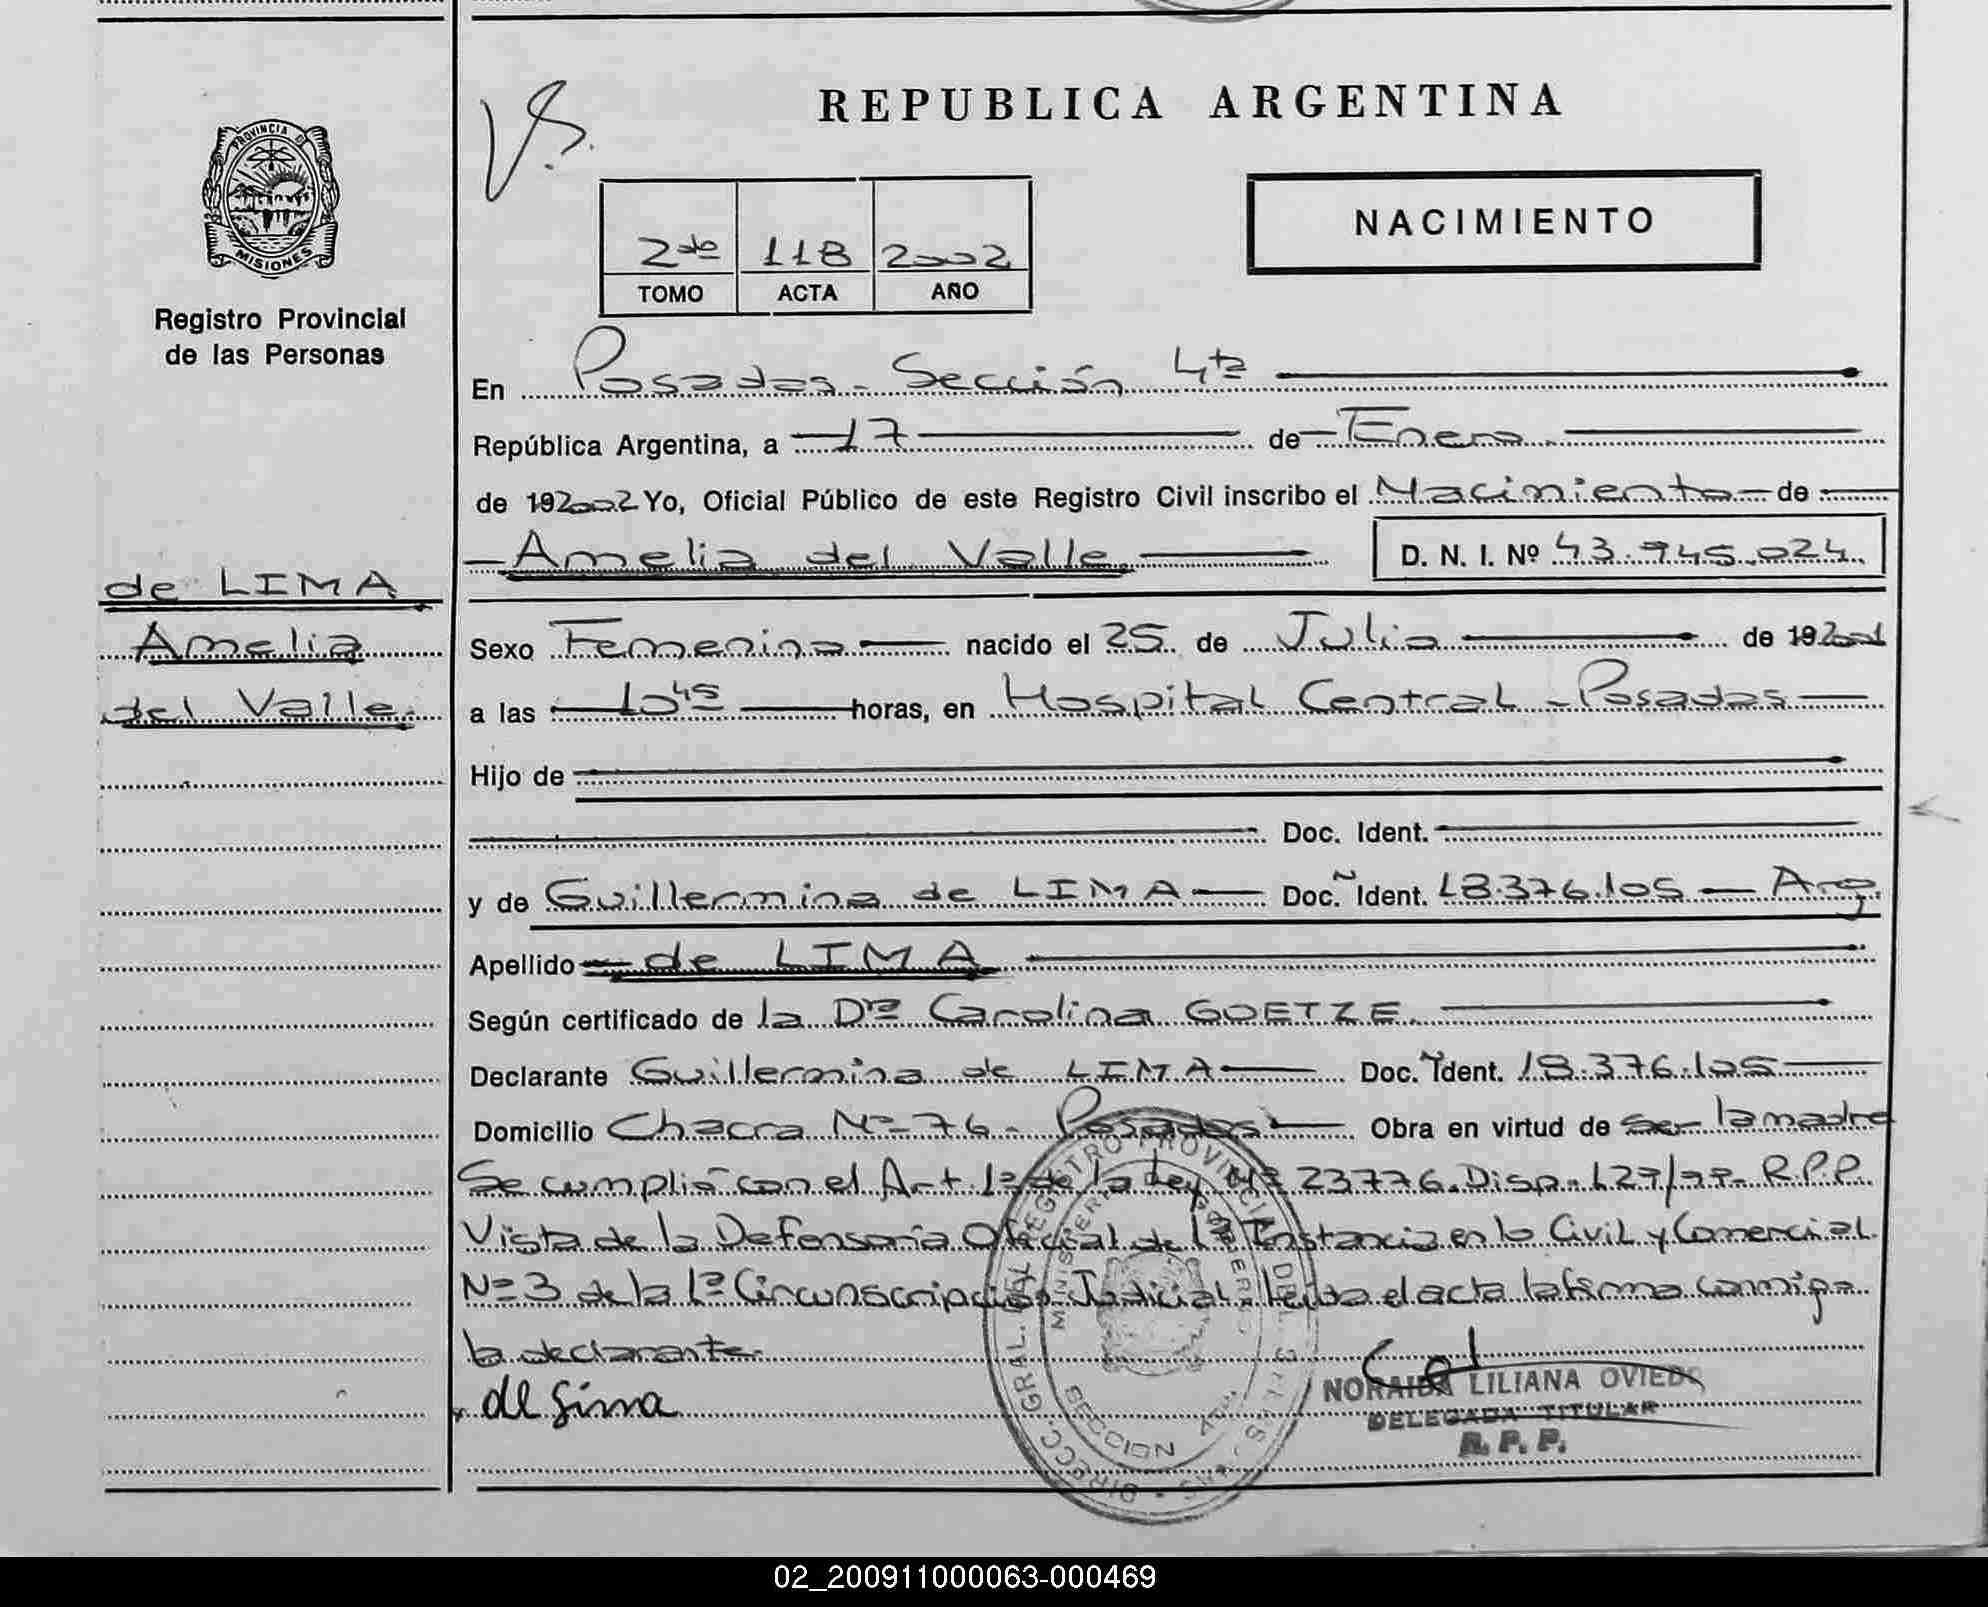 REPUBLICA ARGENTINA
V.S.
PROVINCIA DE
MISIONES
Registro Provincial
de las Personas
NACIMIENTO
2do 118 2002
TOMO ACTA AÑO
En Posadas - Sección 4ta
República Argentina, a 17 de Enero
de 192002 Yo, Oficial Público de este Registro Civil inscribo el Nacimiento de
Amelia del Valle D. N. I. Nº 43.945.024
de LIMA
Amelia
del Valle.
Sexo Femenino nacido el 25 de Julio de 192001
a las 10 45 horas, en Hospital Central - Posadas
Hijo de
Doc. Ident.
y de Guillermina de LIMA Doc. Ident. 18.376.105 - Arg.
Apellido de LIMA
Según certificado de la Dra Carolina GOETZE.
Declarante Guillermina de LIMA Doc. Ident. 18.376.105
Domicilio Chacra Nº 76 - Posadas Obra en virtud de ser la madre
Se cumplió con el Art. 1º de la Ley Nº 23776. Disp. 127/97- R.P.P.
Vista de la Defensoría Oficial de 1ª Instancia en lo Civil y Comercial
Nº 3 de la 1ª Circunscripción Judicial. Leída el acta la firma conmigo
la declarante.
de Lima
NORAIDA LILIANA OVIEDO
DELEGADA TITULAR
R. P. P.
DIRECC. GRAL. DEL REGISTRO PROVINCIAL DE
SECCION 4TA
02_200911000063-000469